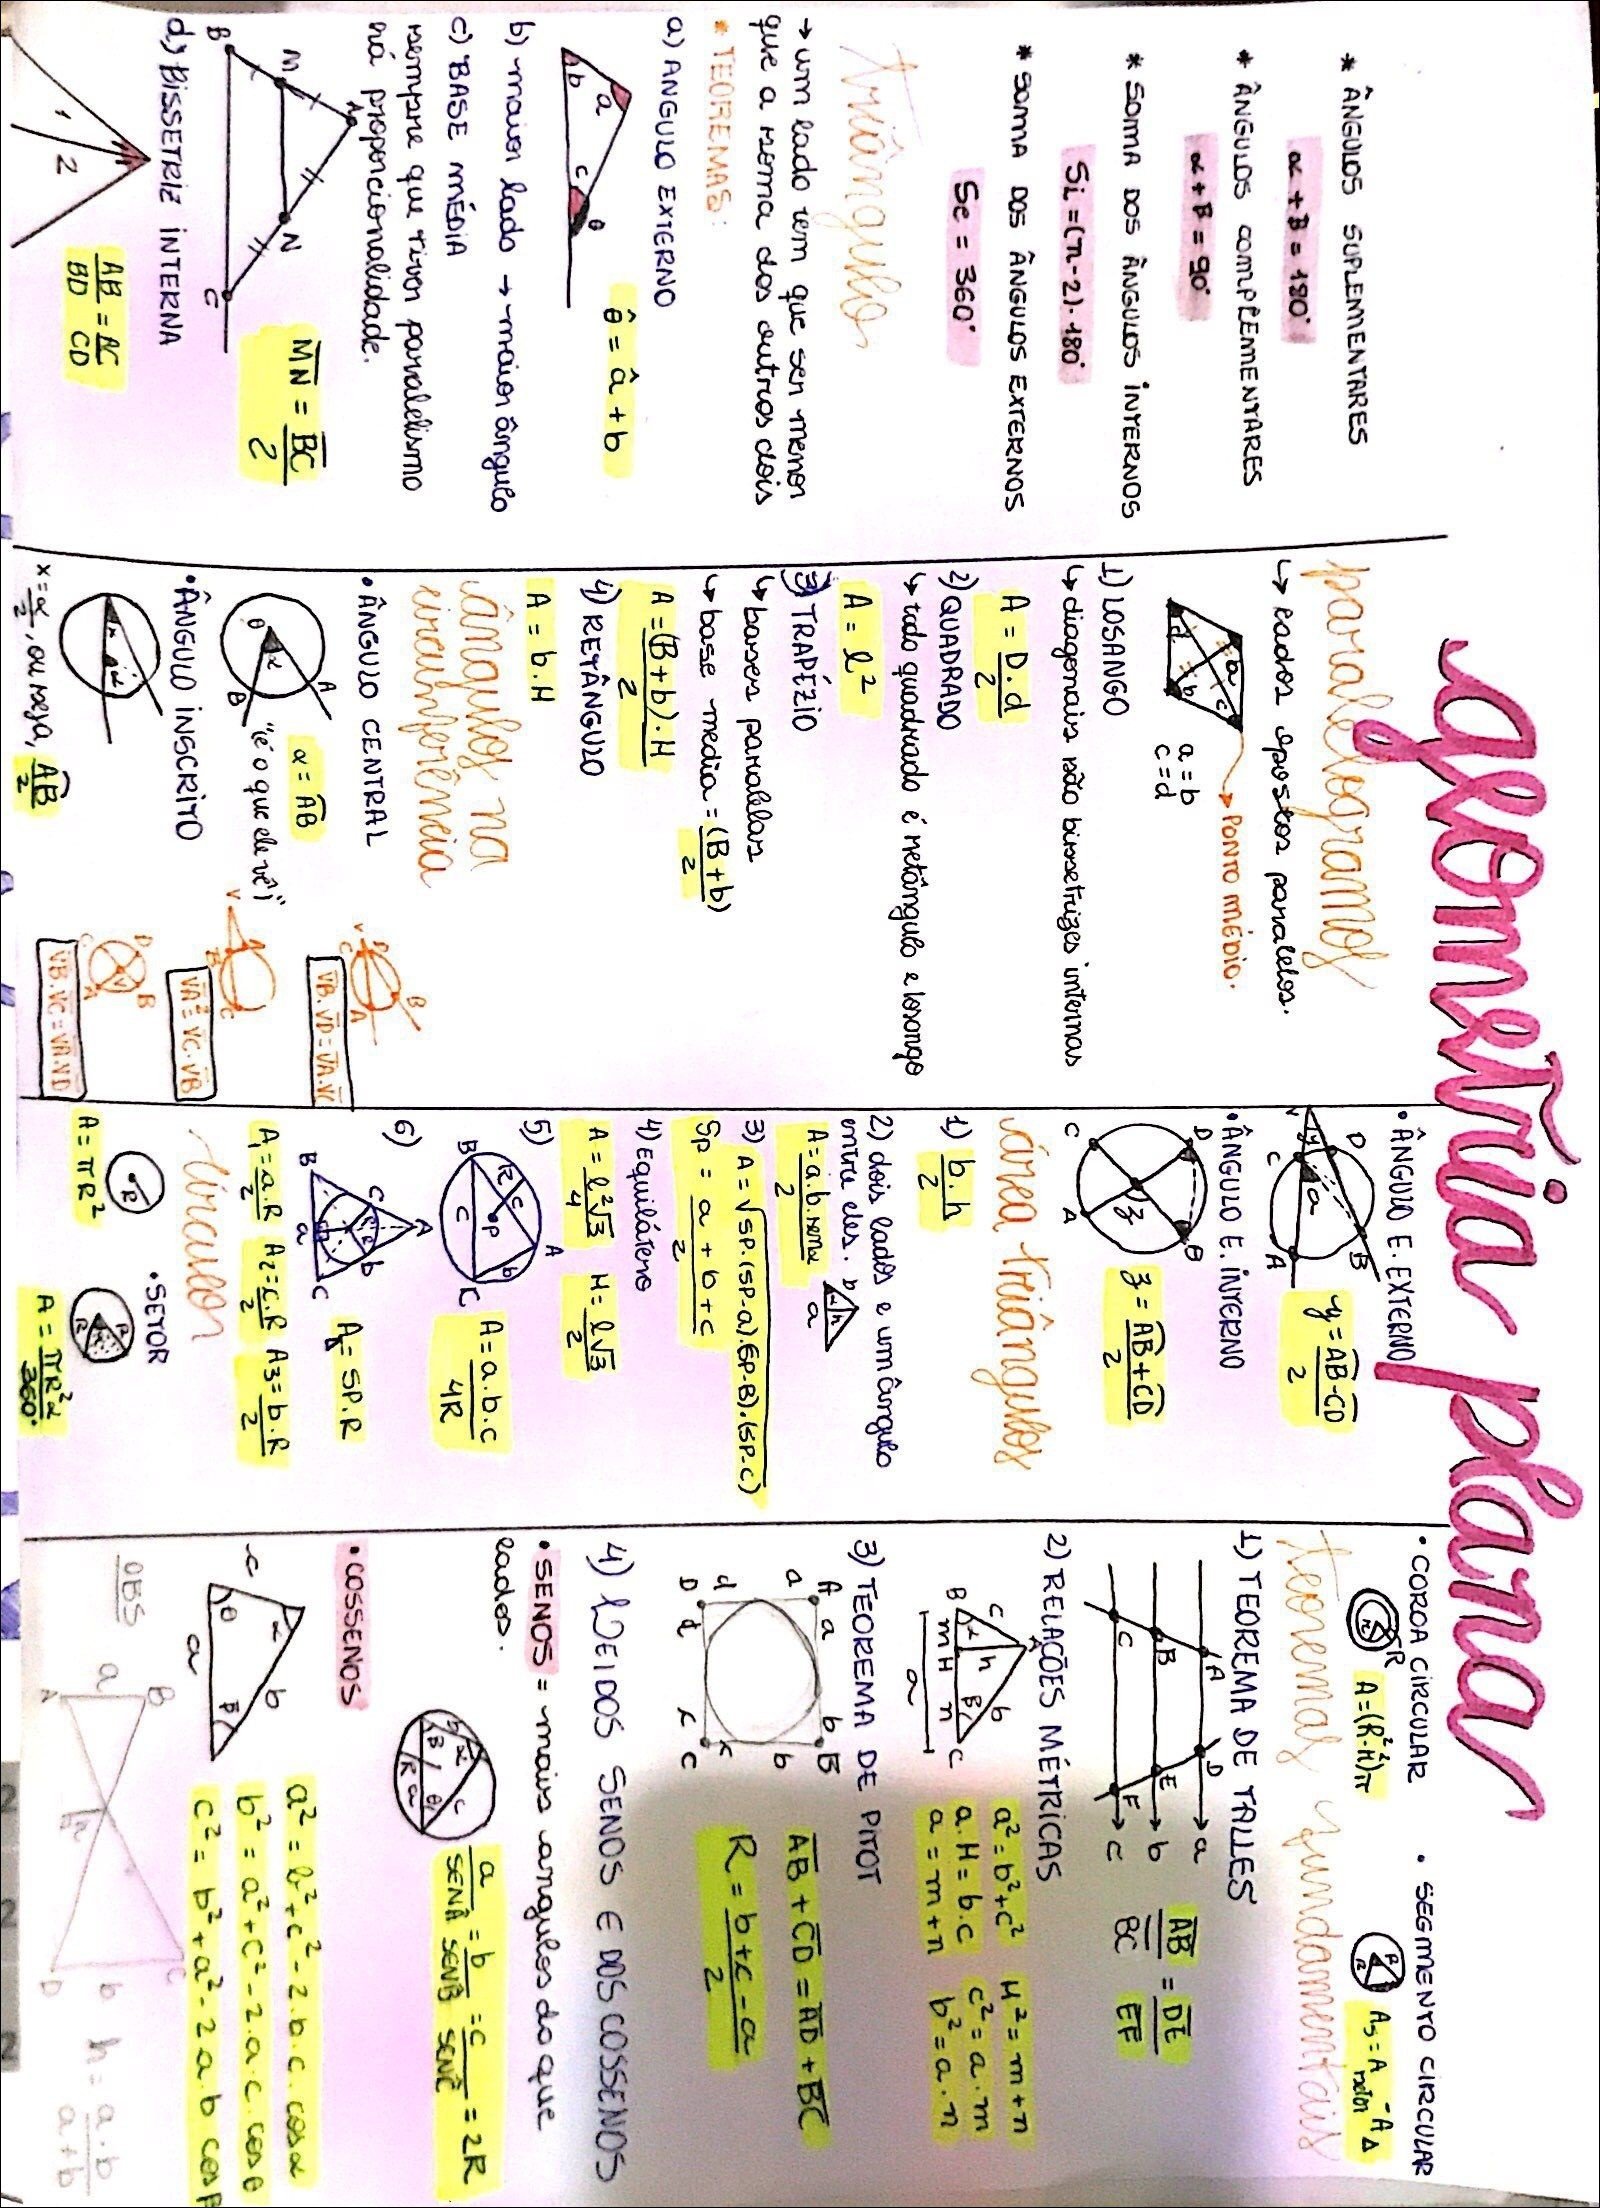 geometria plana
* ÂNGULOS SUPLEMENTARES
α + B = 180°
* ÂNGULOS COMPLEMENTARES
α + B = 90°
* SOMA DOS ÂNGULOS INTERNOS
Si = (n-2). 180°
* SOMA DOS ÂNGULOS EXTERNOS
Se = 360°
triângulos
→ um lado tem que ser menor
que a soma dos outros dois
• TEOREMAS:
a) ANGULO EXTERNO
a
b
c
θ
θ̂ = â + b
b) maior lado → maior ângulo
c) BASE MÉDIA
sempre que tiver paralelismo
há proporcionalidade.
A
M
N
B
C
MN = BC/2
d) BISSETRIZ INTERNA
1
2
AB/BD = AC/CD
paralelogramos
↳ lados opostos paralelos.
a
c
d
b
→ PONTO MÉDIO.
a = b
c = d
1) LOSANGO
↳ diagonais são bissetrizes internas
A = D.d/2
2) QUADRADO
↳ todo quadrado é retângulo e losango
A = l²
3) TRAPÉZIO
↳ bases paralelas
↳ base media = (B+b)/2
A = (B+b).H/2
4) RETÂNGULO
A = b.H
ângulos na
circunferência
• ÂNGULO CENTRAL
A
B
θ
α
α = AB
"é o que ele vê"
• ÂNGULO INSCRITO
x = α/2, ou seja, AB/2
VB.VD = VA.VC
VA² = VC.VB
VB.VC = VA.VD
• ÂNGULO E. EXTERNO
V
D
B
C
A
y
a
y = AB-CD/2
• ÂNGULO E. INTERNO
D
B
C
A
z
z = AB+CD/2
área triângulos
1) b.h/2
2) dois lados e um ângulo
entre eles.
b
h
a
A = a.b.senα/2
3) A = √SP.(SP-a).(SP-B).(SP-C)
Sp = a+b+c/2
4) Equilátero
A = l²√3/4 H = l√3/2
5)
A
B
C
R
P
c
b
A = a.b.c/4R
6)
A
B
C
c
b
a
A = SP.R
A₁ = a.R/2 A₂ = c.R/2 A₃ = b.R/2
círculos
R
A = πR²
• SETOR
R
R
A = πR²α/360°
• COROA CIRCULAR
R
A = (R²-H²)π
• SEGMENTO CIRCULAR
R
R
As = A setor - A Δ
teoremas fundamentais
1) TEOREMA DE TALLES
A
D
a
B
E
b
C
F
c
AB/BC = DE/EF
2) RELAÇÕES MÉTRICAS
A
B
C
c
h
b
m
H
n
a
a² = b² + c² H² = m + n
a.H = b.c c² = a.m
a = m + n b² = a.n
3) TEOREMA DE PITOT
A
a
b
B
a
b
d
D
C
AB + CD = AD + BC
R = b+c-a/2
4) LEI DOS SENOS E DOS COSSENOS
• SENOS = mais angulos do que
lados.
a/SENÂ = b/SENB = c/SENĈ = 2R
• COSSENOS
c
b
a
α
θ
β
a² = b² + c² - 2.b.c.cosα
b² = a² + c² - 2.a.c.cosθ
c² = b² + a² - 2 a.b cosβ
OBS
B
C
a
h
b
A
D
h = a.b/a+b